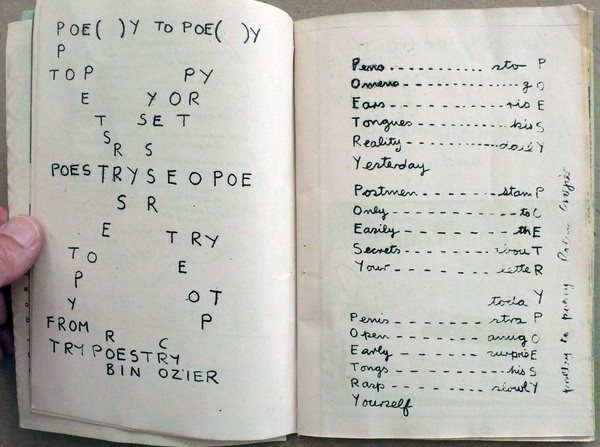 POE( )Y TO POE( )Y
P
TOP PY
E YOR
T SET
S
R S
POESTRYSEOPOE
S R
E TRY
TO E
P
Y OT
P
FROM R C
TRY POESTRY
BIN OZIER
Pens - - - - - - - - sto P
Omens - - - - - - - - g O
Ears - - - - - - - - ris E
Tongues - - - - - - - - kis S
Reality - - - - - - - - dail Y
Yesterday
Postmen - - - - - - - - stam P
Only - - - - - - - - to O
Easily - - - - - - - - th E
Secrets - - - - - - - - abou T
Your - - - - - - - - lette R
toda Y
Penis - - - - - - - - stra P
Open - - - - - - - - amig O
Early - - - - - - - - surpris E
Tongs - - - - - - - - his S
Rasp - - - - - - - - slowl Y
Yourself
to poesy